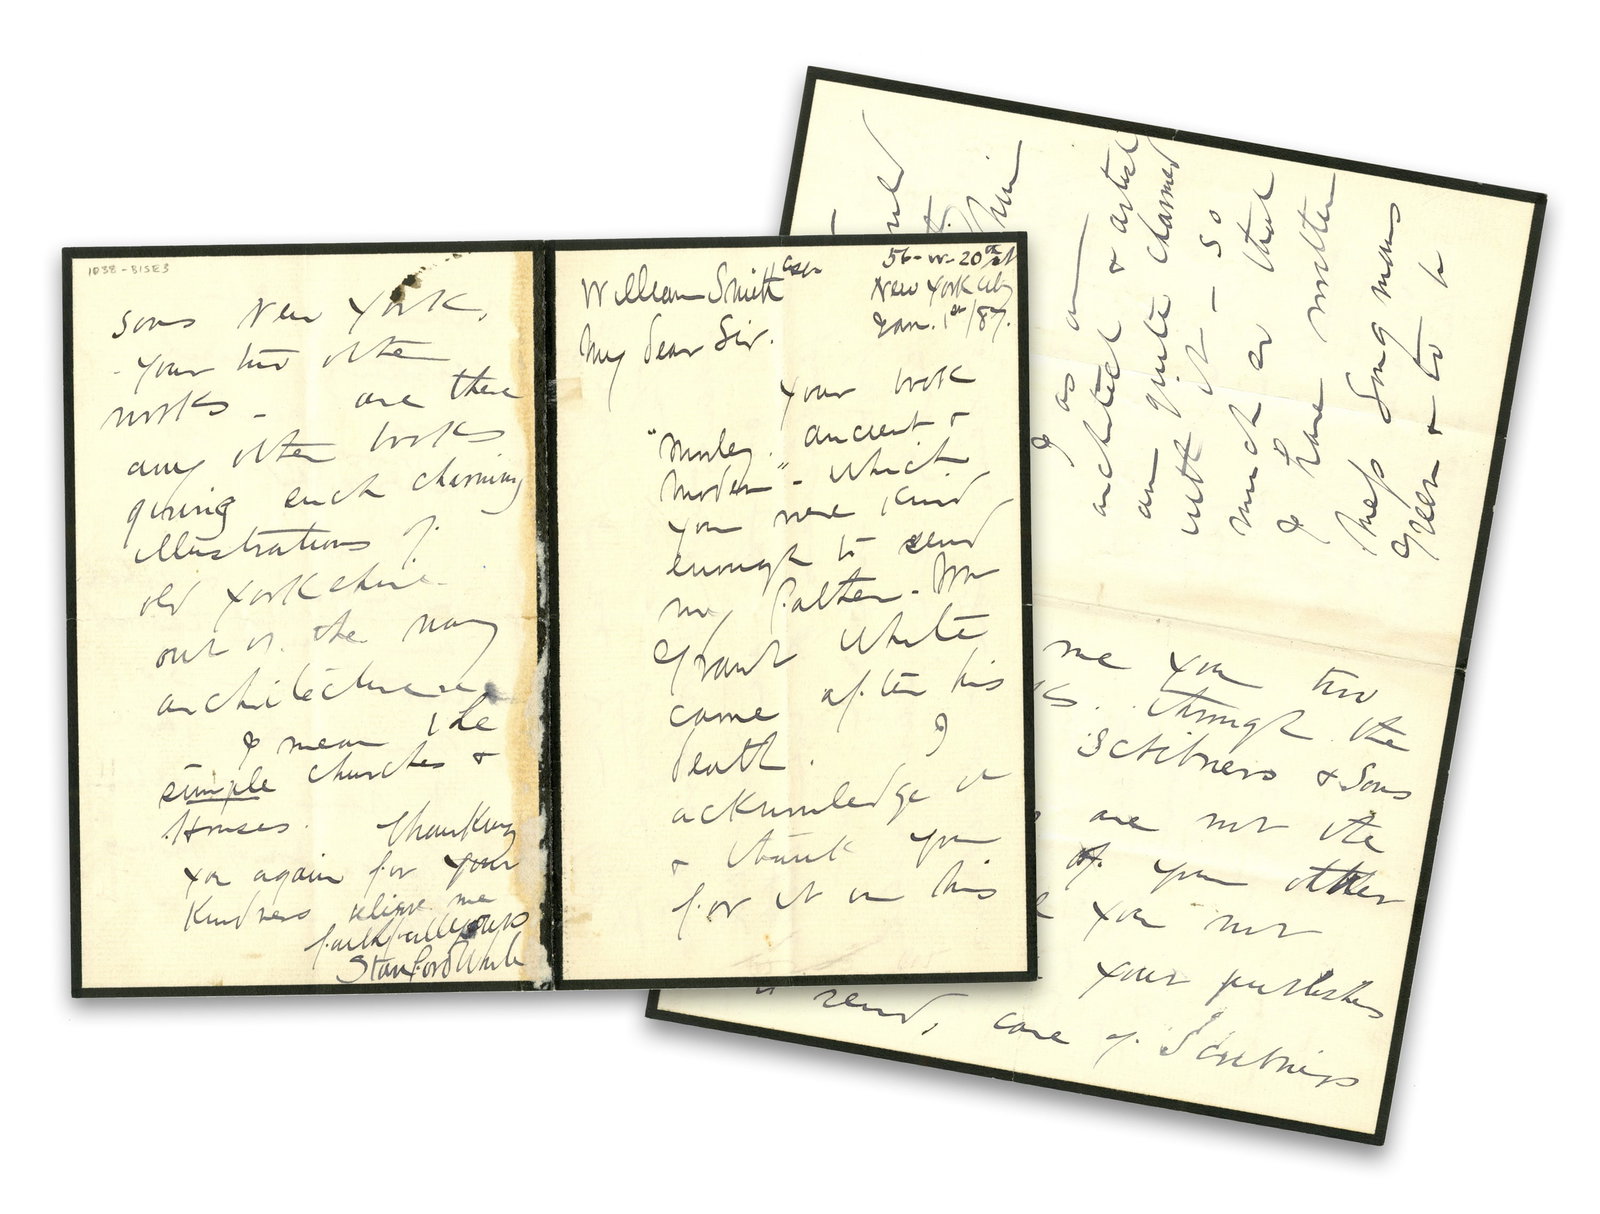 56-W-20th St
New York City
Jan. 1st/87.
William Smith Esqr
My Dear Sir.
Your book
"Morley ancient &
Modern" - which
you were kind
enough to send
my father - Mr
Grant White
came after his
death. I
acknowledge it
& thank you
for it in his
I as an
architect & artist
am quite charmed
with it - so
much so that
I have written
Mess Longmans
Green & to
me your two
through the
Scribners & Sons
are not the
of your other
you not
your publishers
send, care of Scribners
1038-31SE3
Sons New York,
- Your two other
works - are there
any other books
giving such charming
illustrations of
old Yorkshire
out of the way
architecture
I mean the
simple churches &
Houses. Thanking
you again for your
kindness believe me
faithfully yours
Stanford White